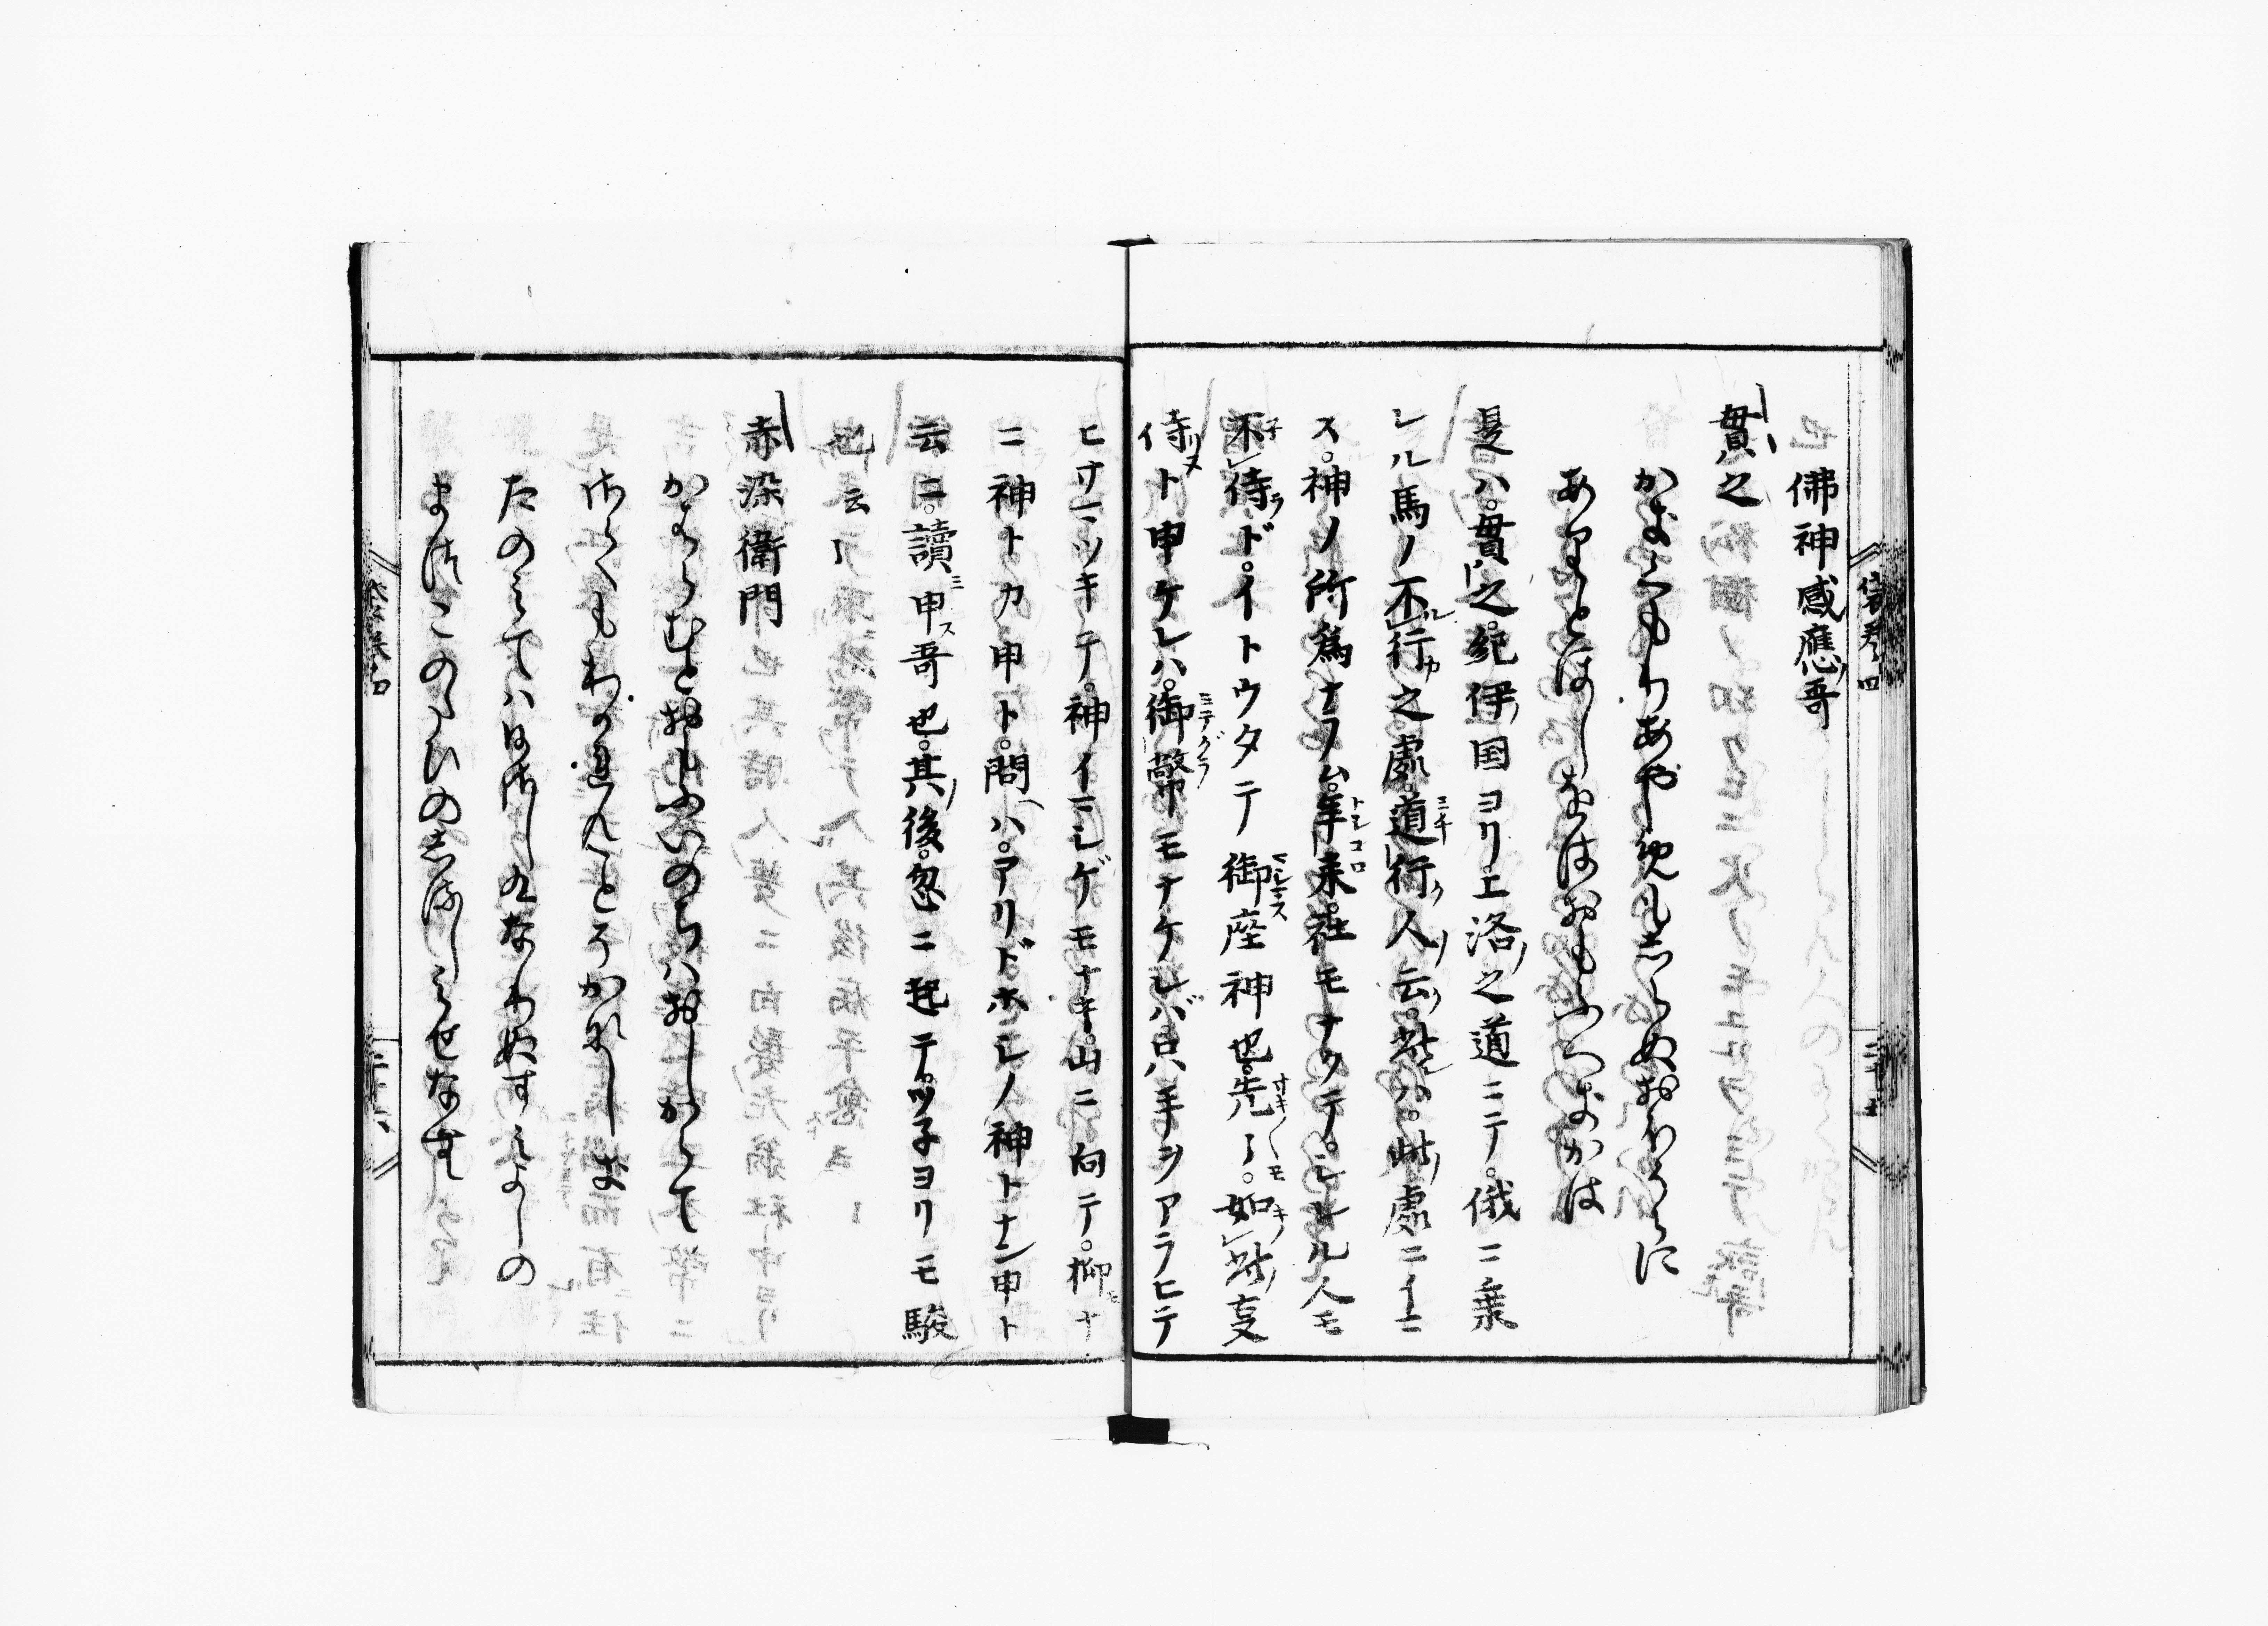 佛神感應哥
貫之
かきくもりあやめもしらぬおほそらに
ありとほしをはおもふへきかは
是ハ。貫之。紀伊国ヨリ上洛之道ニテ。俄ニ乗
レル馬ノ不行之處。道行人云。此ハ。此處ニイマ
ス。神ノ所爲ナラム。年来。社モナクテ。シレル人モ
不侍ド。イトウタテ御座神也。先々。如此支
侍ト申ケレハ。御幣モナケレバ只手ヲアラヒテ
ヒサマツキテ。神イマシゲモナキ。山ニ向テ。抑ナ
ニ神トカ申ト。問ハ。アリドホシノ神トナン申ト
云ニ。讀申哥也。其後。忽ニ起テ。ツ子ヨリモ駿
也云々
赤染衛門
かはらむとおもふいのちはおしからて
さてもわかれんことそかなしき
たのみてはひさしくなりぬすみよしの
まつこのたひのしるしみせなむ
袋巻四
二十五
袋巻四
二十六